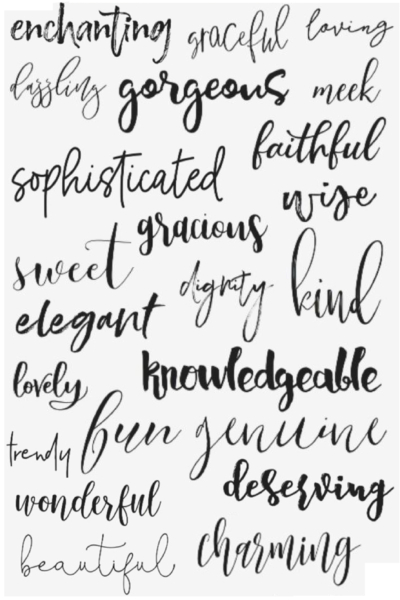 enchanting graceful loving
dazzling gorgeous meek
faithful
sophisticated
wise
gracious
sweet
dignity kind
elegant
lovely knowledgeable
fun genuine
trendy
wonderful deserving
beautiful charming